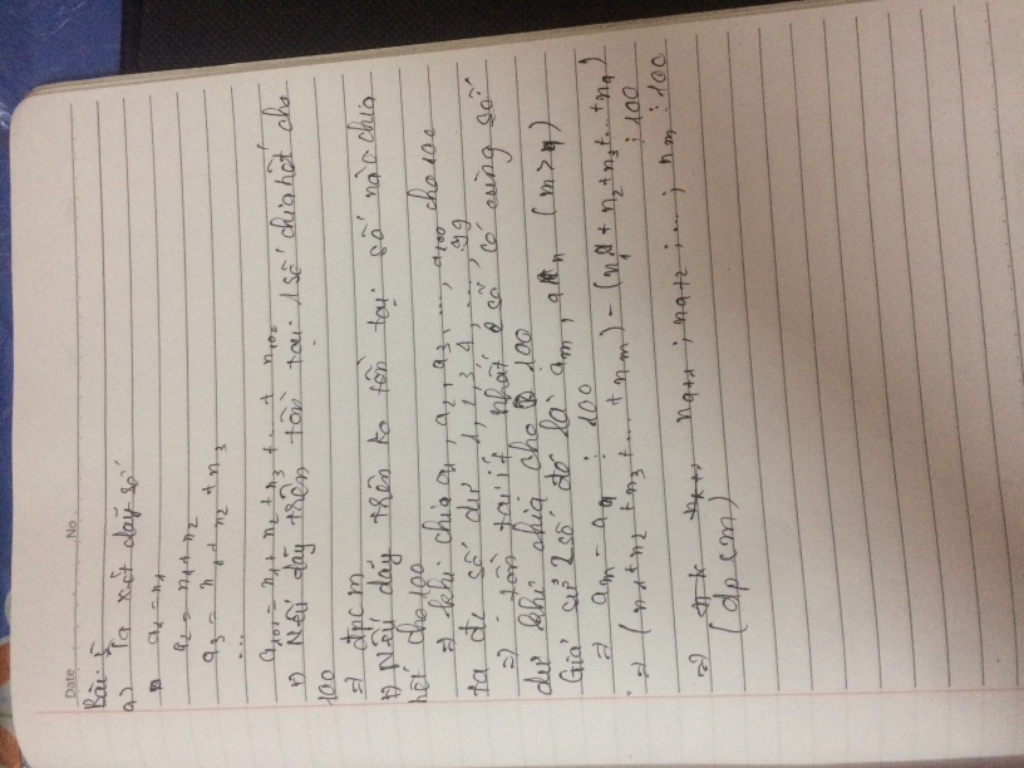 Date No
Bài 5
a) Ta xét dãy số
a₁ = n₁
a₂ = n₁ + n₂
a₃ = n₁ + n₂ + n₃
...
a₁₀₀ = n₁ + n₂ + n₃ + .... + n₁₀₀
+) Nếu dãy trên tồn tại 1 số chia hết cho
100
=> đpcm
+) Nếu dãy trên ko tồn tại số nào chia
hết cho 100
=> khi chia a₁, a₂, a₃, ..., a₁₀₀ cho 100
ta đc số dư 1, 2, 3, 4, ...., 99
=> tồn tại ít nhất 2 số có cùng số
dư khi chia cho 100
Giả sử 2 số đó là aₘ, aₙ (m > n)
=> aₘ - aₙ ⋮ 100
=> (n₁ + n₂ + n₃ + .... + nₘ) - (n₁ + n₂ + n₃ + ... + nₙ)
⋮ 100
=> nₙ₊₁ ; nₙ₊₂ ; ... ; nₘ ⋮ 100
(đpcm)